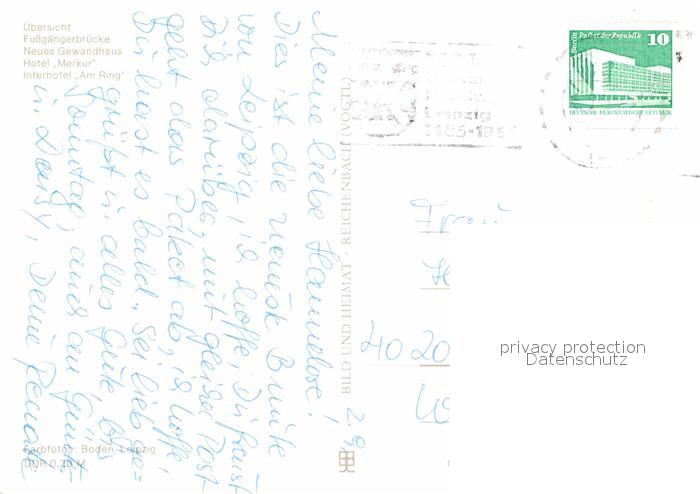 Übersicht
Fußgängerbrücke
Neues Gewandhaus
Hotel „Merkur"
Interhotel „Am Ring"
Meine liebe Hannelore!
Dies ist die neuste Bunte
von Leipzig, ich hoffe, Du freust
Dich darüber, mit gleicher Post
geht das Paket ab, ich hoffe,
Du hast es bald. Sei lieb ge-
grüßt u. alles Gute, bis
Sonntag, auch an Günter
u. Dein
2.9.
BILD UND HEIMAT · REICHENBACH (VOGTL)
Farbfotos: Boden, Leipzig
DDR 0,20 M
Berlin Palast der Republik
10
DEUTSCHE DEMOKRATISCHE REPUBLIK
Leipzig
4020
privacy protection
Datenschutz